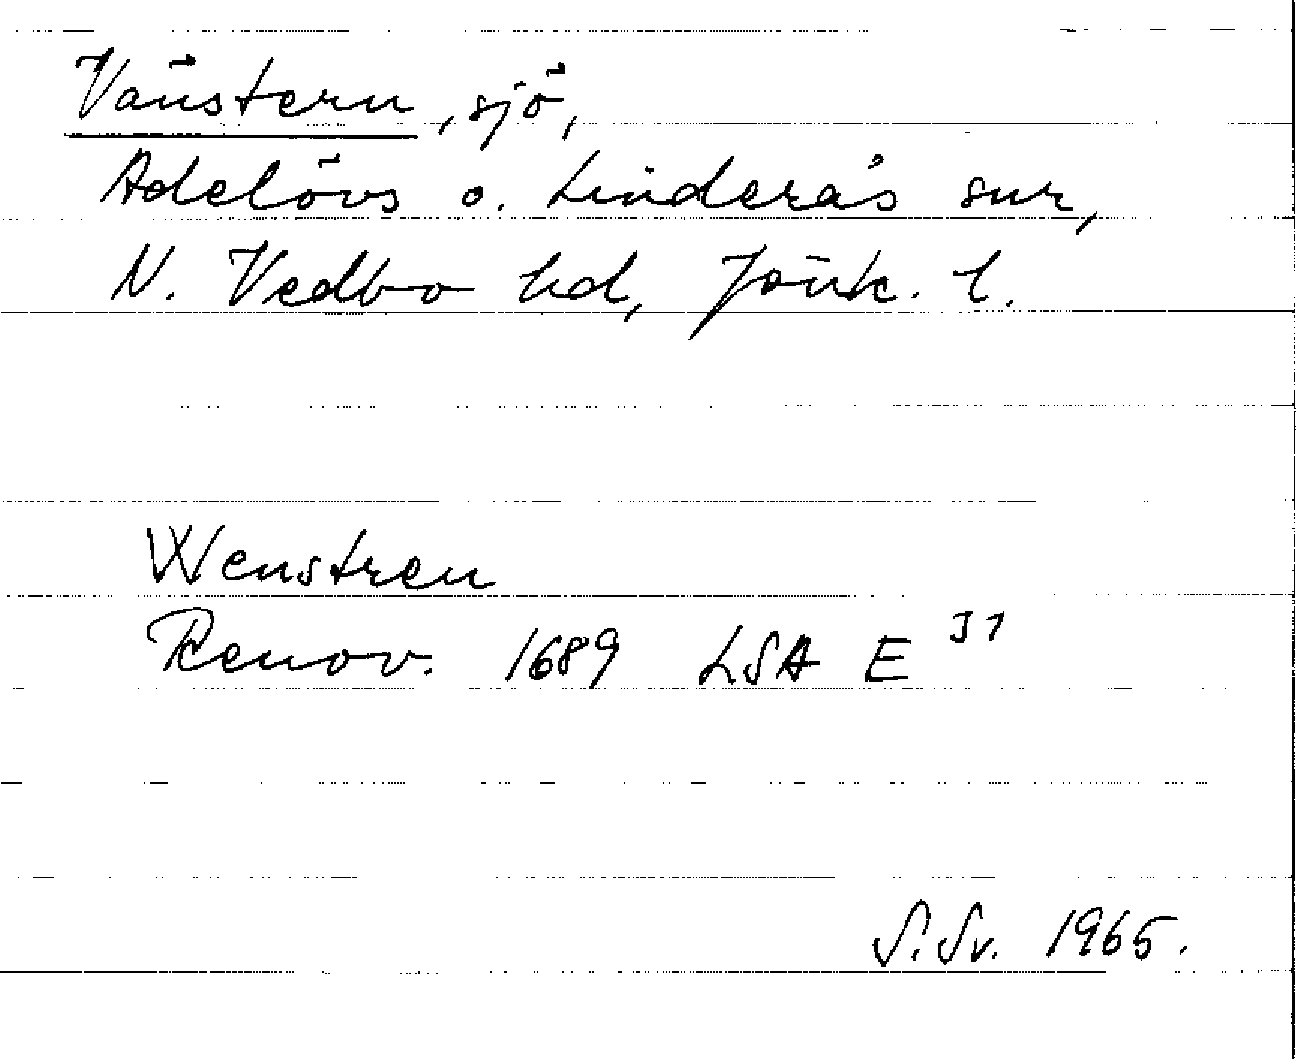 Vänstern, sjö,
Adelövs o. Linderås snr,
N. Vedbo hd, Jönk. l.
Wenstren
Renov. 1689 LSA E
S. Sv. 1965.